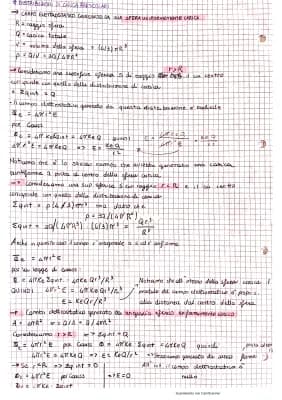 DISTRIBUZIONI DI CARICA PARTICOLARI
→ CAMPO ELETTROSTATICO GENERATO DA UNA SFERA UNIFORMEMENTE CARICA
R = raggio sfera
Q = carica totale
V = volume della sfera = (4/3)πR³
ρ = Q/V = 3Q/4πR³
r > R
→ Consideriamo una superficie sferica S di raggio il cui centro
coincide con quello della distribuzione di carica
Σqint = Q
Il campo elettrostatico generato da questa distribuzione è radiale
Φe = 4πr²E per Gauss Φe = 4πKeΣqint = 4πKeQ quindi
4πr²E = 4πKeQ ⇒ E = KeQ/r²
Notiamo che è lo stesso campo che avrebbe generato una carica
puntiforme Q posta al centro della sfera carica
→ Consideriamo una sup. sferica S con raggio r < R e il cui centro
coincide con quello della distribuzione di carica
Σqint = ρ(4/3)πr³ ma dato che
ρ = 3Q/(4πR³)
Σqint = 3Q/(4πR³) (4/3)πr³ = Qr³/R³
Anche in questo caso il campo è radiale e uniforme
Φe = 4πr²E
per la legge di Gauss
Φ = 4πKe Σqint = 4πKeQr³/R³
QUINDI 4πr²E = 4πKeQr³/R³
E = KeQr/R³
Notiamo che all'interno della sfera carica il
modulo del campo elettrostatico è prop.
alla distanza dal centro della sfera
Campo elettrostatico generato da un guscio sferico uniformemente carico
A = 4πR² = Q/A = Q/4πR²
Consideriamo r > R → Σqint = Q
Φe = 4πr²E per Gauss Φe = 4πKe Σqint = 4πKeQ quindi
4πr²E = 4πKeQ ⇒ E = KeQ/r²
→ Se r < R ⇒ Σqint = 0
Φe = 4πr²E per Gauss ⇒ E = 0
Φe = 4πKe Σqint
All'int. il campo elettrostatico è
nullo
Scansionato con CamScanner